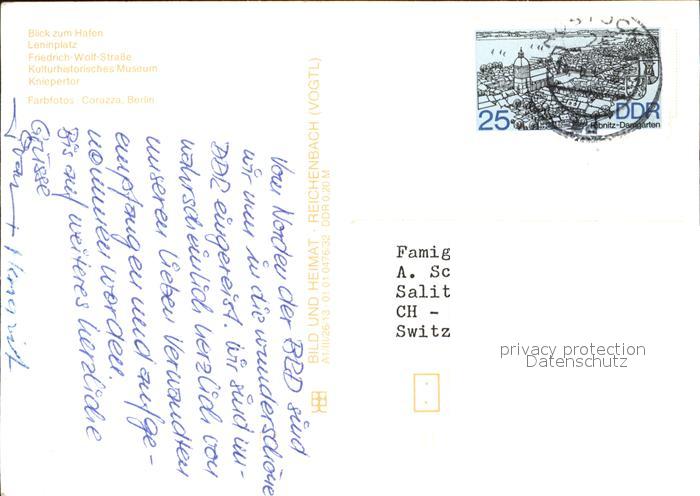 Blick zum Hafen
Leninplatz
Friedrich-Wolf-Straße
Kulturhistorisches Museum
Kniepertor
Farbfotos: Corazza, Berlin
Vom Norden der BRD sind
wir nun in die wunderschöne
DDR eingereist. Wir sind un-
wahrscheinlich herzlich von
unseren lieben Verwandten
empfangen und aufge-
nommen worden.
Bis auf weiteres herzliche
Grüsse
BILD UND HEIMAT · REICHENBACH (VOGTL)
A1/III/26/13 01 01 0476/32 DDR 0,20 M
25
DDR
Ribnitz-Damgarten
Famig
A. Sc
Salit
CH -
Switz
privacy protection
Datenschutz